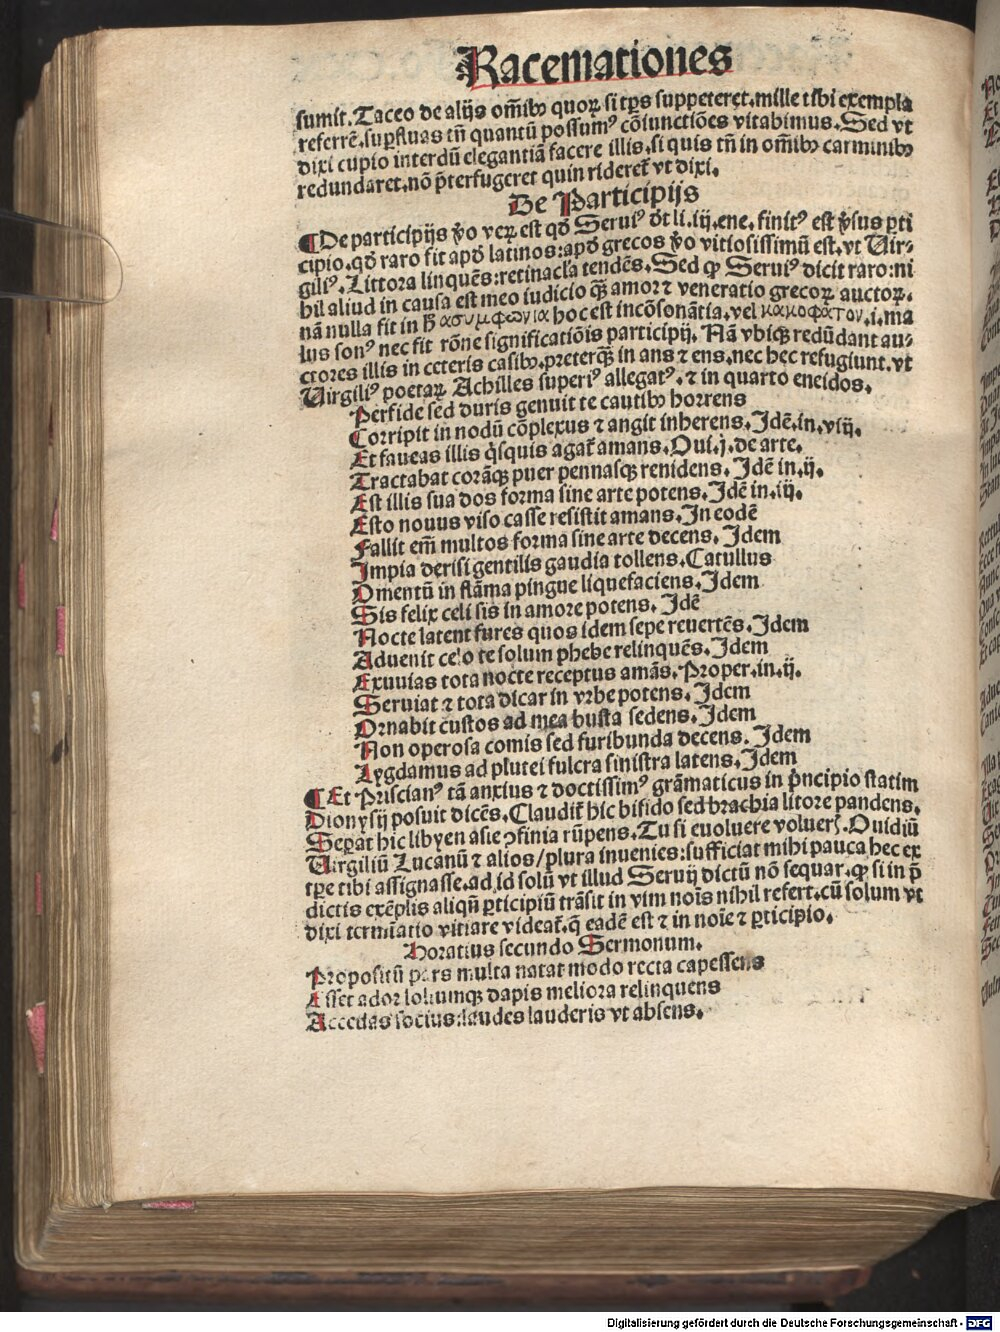 Racemationes
sumit. Taceo de alijs om̃ibꝰ quoꝝ si tp̃s suppeteret, mille tibi exempla
referrē, suꝑfluas tñ quantū possumꝰ cōiunctiōes vitabimus. Sed vt
dixi cupio interdū elegantiā facere illis, si quis tñ in om̃ibꝰ carminibꝰ
redundaret, nō p̃terfugeret quin rideret̃ vt dixi.
De Participijs
¶De participijs ꝟo veꝝ est qd̃ Seruiꝰ d̃t li. iij. ene. finitꝰ est ꝟsus ꝑti
cipio, qd̃ raro fit apd̃ latinos: apd̃ grecos ꝟo vitiosissimū est, vt Uir⸗
giliꝰ. Littora linquēs: retinacla tendēs. Sed ꝙ Seruiꝰ dicit raro: ni
hil aliud in causa est meo iudicio q̃ꝫ amor ⁊ veneratio grecoꝝ auctoꝝ.
nā nulla fit in h̄ ασυμφωνια hoc est incōsonātia, vel κακοφατον .i. ma
lus sonꝰ nec fit rōne significatiōis participij. Nā vbicꝫ redūdant au⸗
ctores illis in ceteris casibꝰ, preterq̃ꝫ in ans ⁊ ens, nec hec refugiunt, vt
Uirgiliꝰ poetaꝝ Achilles superiꝰ allegatꝰ, ⁊ in quarto eneidos.
Perfide sed duris genuit te cautibꝰ horrens
Corripit in nodū cōplexus ⁊ angit inherens. Idē. in. viij.
Et faueas illis q̇squis agat̃ amans. Oui. j. de arte.
Tractabat corāqꝫ puer pennasqꝫ renidens. Idē in. ij.
Est illis sua dos forma sine arte potens. Idē in. iij.
Esto nouus viso casse resistit amans. In eodē
Fallit em̃ multos forma sine arte decens. Idem
Impia derisi gentilis gaudia tollens. Catullus
Omentū in flāma pingue liquefaciens. Idem
Sis felix celi sis in amore potens. Idē
Nocte latent fures quos idem sepe reuertēs. Idem
Aduenit celo te solum phebe relinquēs. Idem
Exuuias tota nocte receptus amās. Proper. in. ij.
Seruiat ⁊ tota dicar in vrbe potens. Idem
Ornabit custos ad mea busta sedens. Idem
Non operosa comis sed furibunda decens. Idem
Lygdamus ad plutei fulcra sinistra latens. Idem
¶Et Priscianꝰ tā anxius ⁊ doctissimꝰ grāmaticus in p̃ncipio statim
Dionysij posuit dicēs. Claudit̃ hic bifido sed brachia litore pandens.
Seꝑat hic libyen asie ꝯfinia rūpens. Tu si euoluere volueris. Ouidiū
Uirgiliū Lucanū ⁊ alios/plura inuenies: sufficiat mihi pauca hec ex
tp̃e tibi assignasse, ad id solū vt illud Seruij dictū nō sequar, ꝙ si in p̃
dictis exēplis aliqñ ꝑticipiū trāsit in vim nois nihil refert, cū solum vt
dixi terminatio vitiare videat̃, q̃ eadē est ⁊ in noie ⁊ ꝑticipio.
Horatius secundo Sermonum.
Propositū pars multa natat modo recta capessens
Esset ador loliumqꝫ dapis meliora relinquens
Accedas socius: laudes lauderis vt absens.
Digitalisierung gefördert durch die Deutsche Forschungsgemeinschaft - DFG